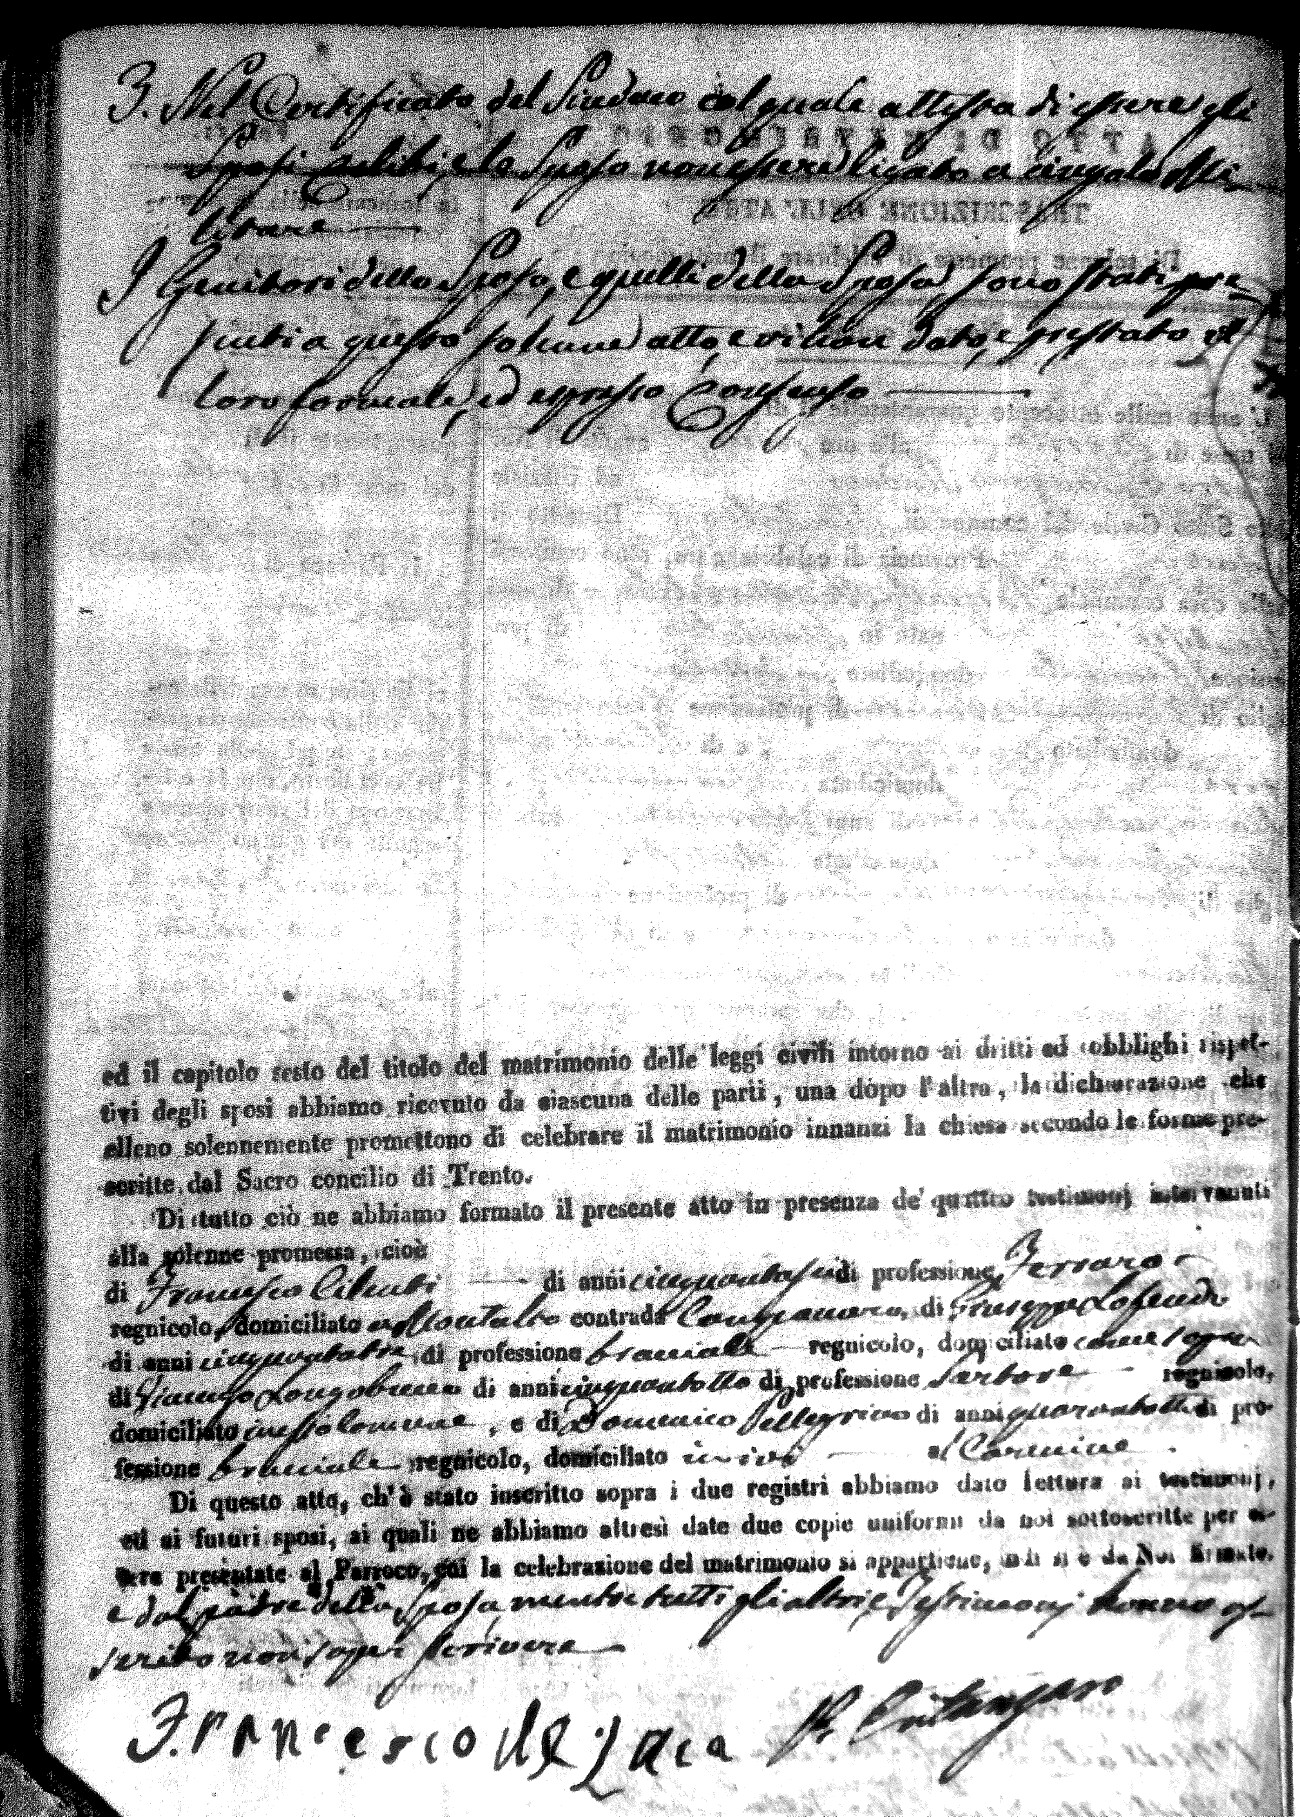 3. Nel Certificato del Sindaco col quale attesta di essere gli
Sposi celibi, e lo Sposo non essere ligato a cingolo Mi-
litare
I Genitori dello Sposo, e quelli della Sposa, sono stati pre-
senti a questo solenne atto, e vi han dato, e prestato il
loro formale, ed espresso Consenso
ed il capitolo sesto del titolo del matrimonio delle leggi civili intorno ai dritti ed obblighi rispet-
tivi degli sposi abbiamo ricevuto da ciascuna delle parti, una dopo l'altra, la dichiarazione che
elleno solennemente promettono di celebrare il matrimonio innanzi la chiesa secondo le forme pre-
scritte dal Sacro concilio di Trento.
Di tutto ciò ne abbiamo formato il presente atto in presenza de' quattro testimonj intervenuti
alla solenne promessa, cioè
di Francesco di anni cinquantasei di professione Ferraro
regnicolo, domiciliato a Montalto contrada di Giuseppe
di anni cinquantatre di professione bracciale regnicolo, domiciliato come sopra
di di anni cinquantotto di professione Sartore regnicolo,
domiciliato in esso Comune, e di Domenico Pellegrino di anni quarantotto di pro-
fessione bracciale regnicolo, domiciliato ivi al Carmine.
Di questo atto, ch'è stato inscritto sopra i due registri abbiamo dato lettura ai testimonj,
ed ai futuri sposi, ai quali ne abbiamo altresì date due copie uniformi da noi sottoscritte per es-
sere presentate al Parroco, cui la celebrazione del matrimonio si appartiene, indi si è da Noi firmato,
e dal padre della Sposa, mentre tutti gli altri, e Testimonj hanno as-
serito non saper scrivere
Francesco de Luca